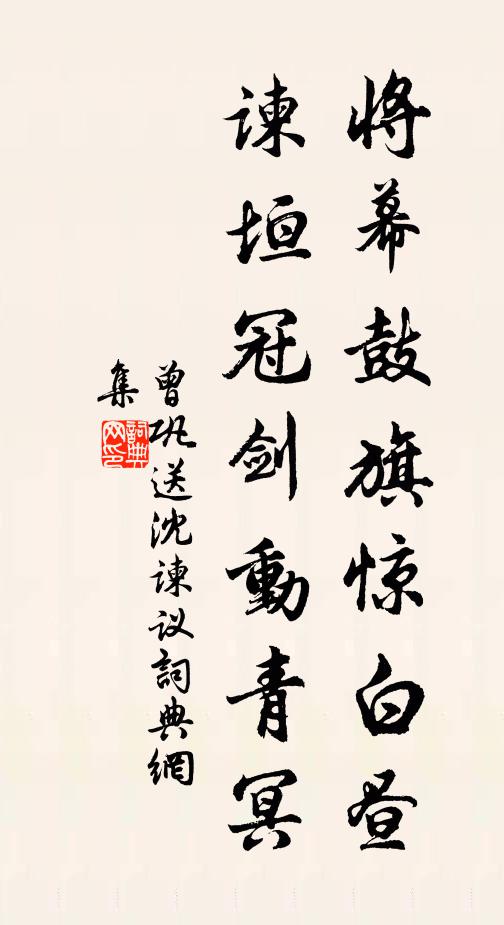 将幕鼓旗惊白昼
谏垣冠剑動青冥
曾巩送沈谏议詞典網
集
詞典
网印